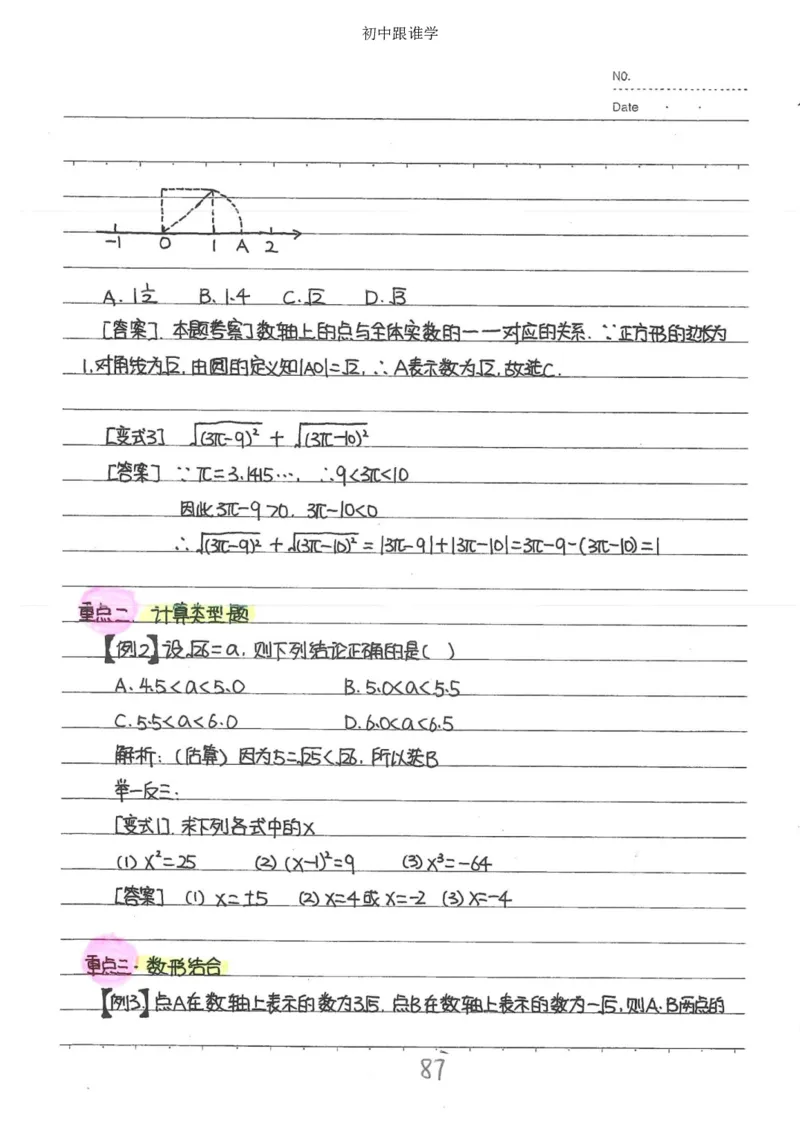 初中跟谁学
NO.
Date
-1 0 1 A 2
A. 1½ B. 1.4 C. √2 D. √3
[答案]. 本题考察了数轴上的点与全体实数的一一对应的关系. ∵正方形的边长为
1, 对角线为√2, 由圆的定义知|AO|=√2, ∴ A表示数为√2, 故选C.
[变式3] √(3π-9)² + √(3π-10)²
[答案] ∵ π=3.1415…, ∴9<3π<10
因此3π-9>0. 3π-10<0
∴ √(3π-9)² + √(3π-10)² = |3π-9|+|3π-10|=3π-9-(3π-10)=1
重点二. 计算类型题
【例2】设√26=a, 则下列结论正确的是( )
A. 4.5<a<5.0 B. 5.0<a<5.5
C. 5.5<a<6.0 D. 6.0<a<6.5
解析: (估算) 因为5=√25<√26, 所以选B
举一反三:
[变式1]. 求下列各式中的x
(1) x²=25 (2) (x-1)²=9 (3) x³=-64
[答案] (1) x=±5 (2) x=4或x=-2 (3) x=-4
重点三·数形结合
【例3.】点A在数轴上表示的数为3√5, 点B在数轴上表示的数为-√5, 则A.B两点的
87